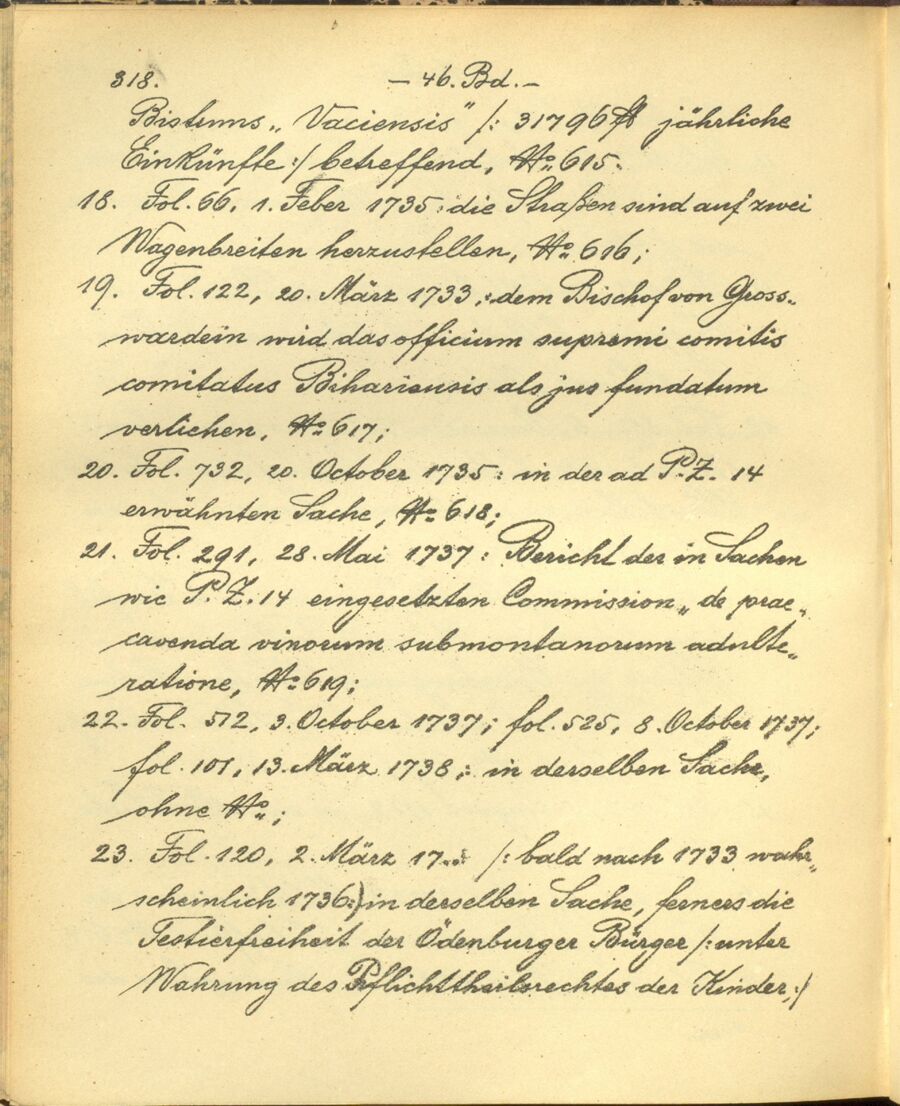 318. – 46. Bd. –
Bistums „Vaciensis" /: 31796 fl jährliche
Einkünfte :/ betreffend, No 615.
18. Fol. 66, 1. Feber 1735: die Straßen sind auf zwei
Wagenbreiten herzustellen, No 616;
19. Fol. 122, 20. März 1733,: dem Bischof von Gross-
wardein wird das officium supremi comitis
comitatus Bihariensis als jus fundatum
verliehen, No 617;
20. Fol. 732, 20. October 1735: in der ad P. Z. 14
erwähnten Sache, No 618;
21. Fol. 291, 28. Mai 1737: Bericht der in Sachen
wie P. Z. 14 eingesetzten Commission „de prae„
cavenda vinorum submontanorum adulte„
ratione, No 619;
22. Fol. 512, 3. October 1737; fol. 525, 8. October 1737;
fol. 101, 13. März 1738,: in derselben Sache,
ohne No;
23. Fol. 120, 2. März 17.. /: bald nach 1733 wahr„
scheinlich 1736:) in derselben Sache, ferners die
Testierfreiheit der Ödenburger Bürger /: unter
Wahrung des Pflichttheilsrechtes der Kinder :/